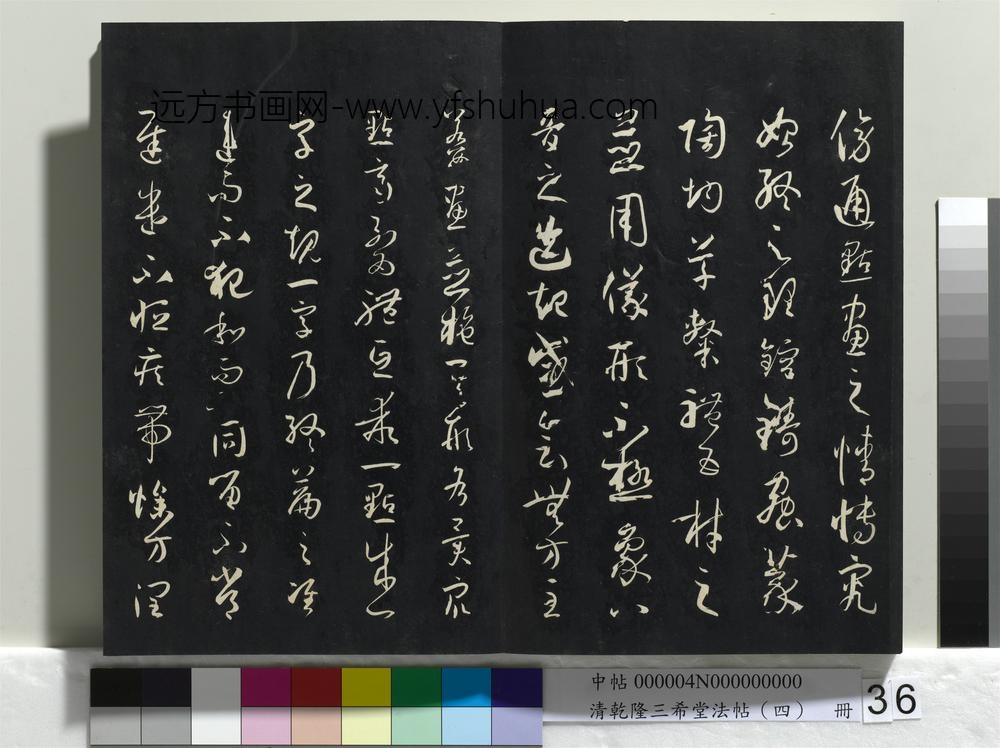 傍通點畫之情博究
始終之理鎔鑄蟲篆
陶均草隸體五材之
並用儀形不極象八
音之迭起感會無方至
若數畫並施其形各異衆
點齊列爲體互乖一點成一
字之規一字乃終篇之準
違而不犯和而不同留不常
遲遣不恒疾帶燥方潤
远方书画网-www.yfshuhua.com
中帖 000004N000000000
清乾隆三希堂法帖（四） 冊
36